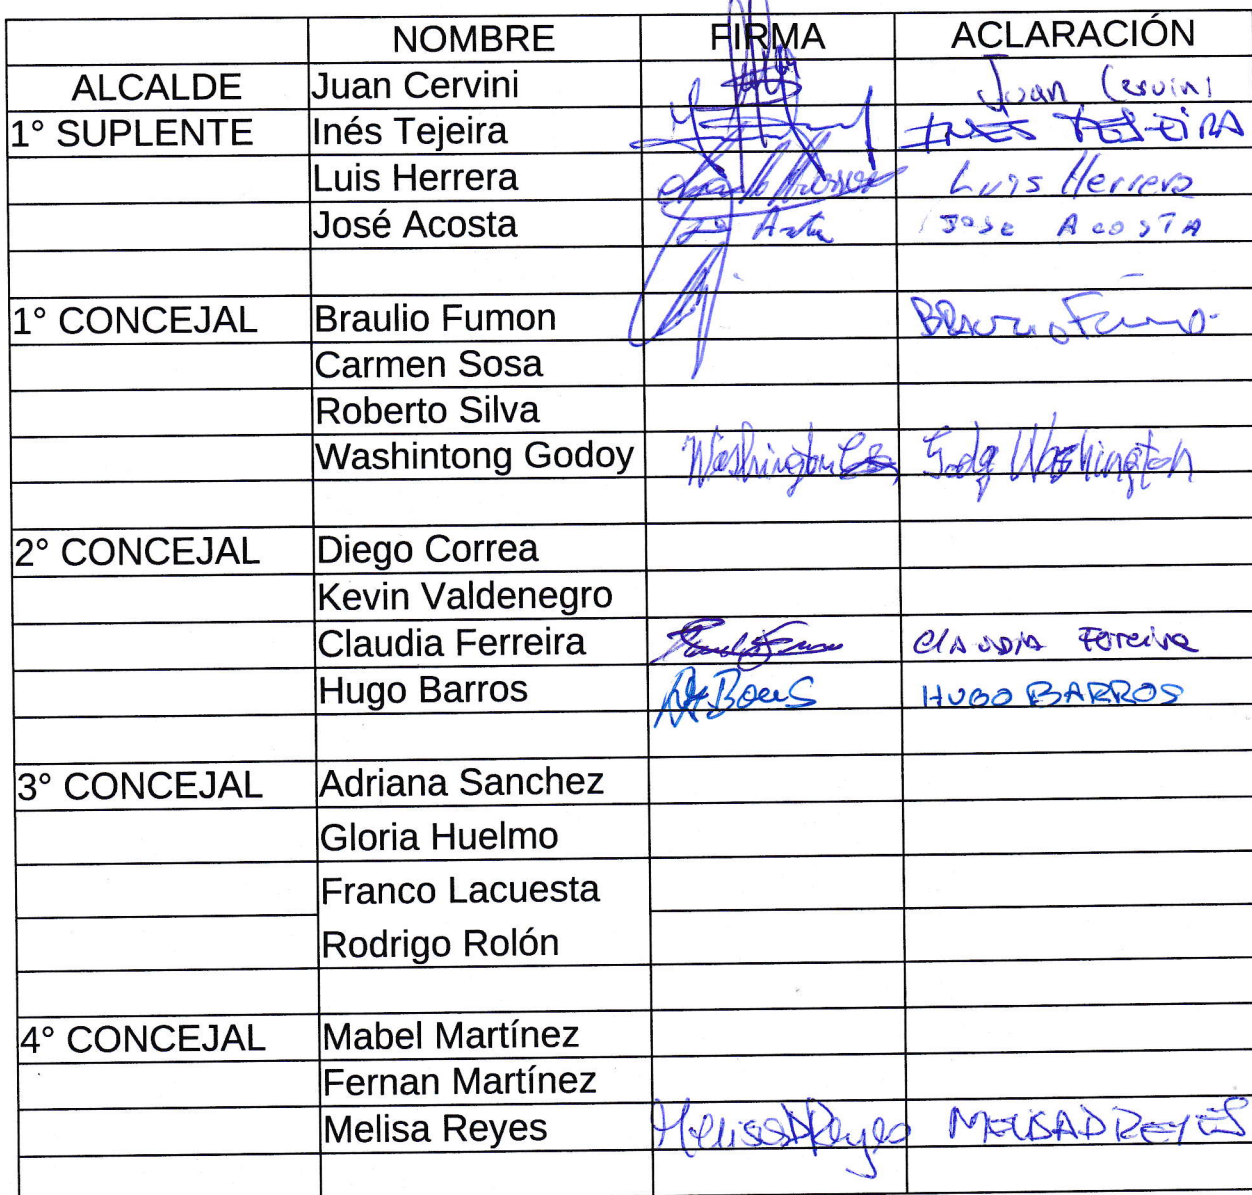 NOMBRE FIRMA ACLARACIÓN
ALCALDE Juan Cervini Juan Cervini
1° SUPLENTE Inés Tejeira INES TEJEIRA
Luis Herrera Luis Herrera
José Acosta JOSE ACOSTA
1° CONCEJAL Braulio Fumon
Carmen Sosa
Roberto Silva
Washintong Godoy Washington Godoy Washington
2° CONCEJAL Diego Correa
Kevin Valdenegro
Claudia Ferreira ClAUDIA Ferreira
Hugo Barros HUGO BARROS
3° CONCEJAL Adriana Sanchez
Gloria Huelmo
Franco Lacuesta
Rodrigo Rolón
4° CONCEJAL Mabel Martínez
Fernan Martínez
Melisa Reyes Melissa D Reyes MELISA D REYES